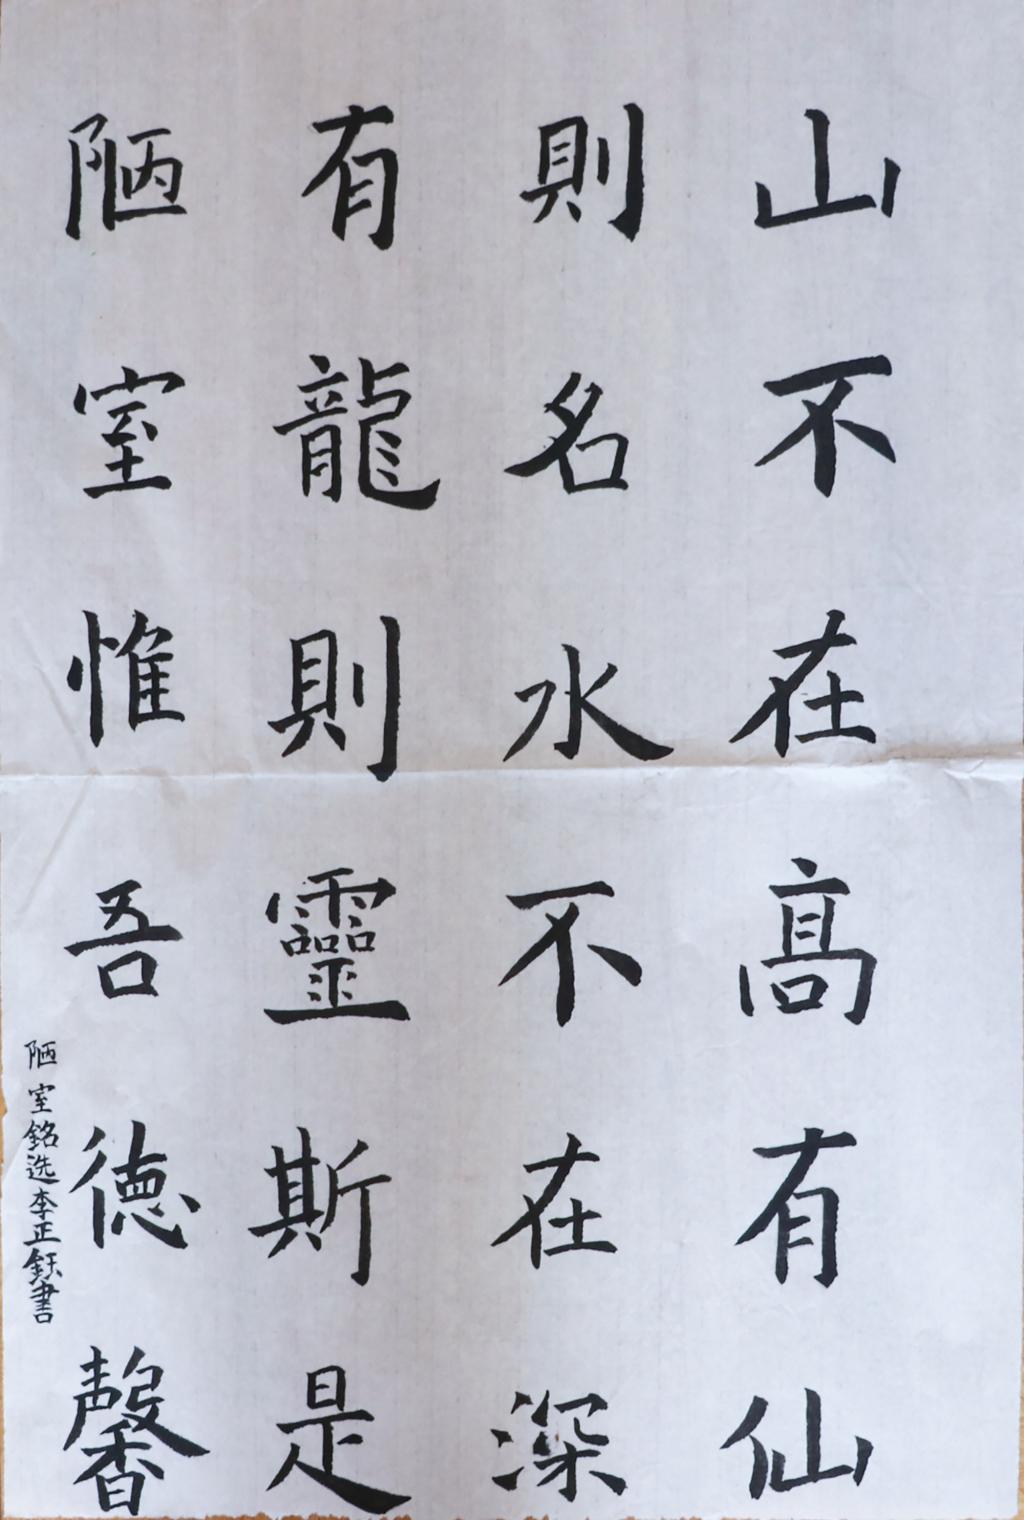 山不在高有仙
則名水不在深
有龍則靈斯是
陋室惟吾德馨
陋室銘选李正鈺書